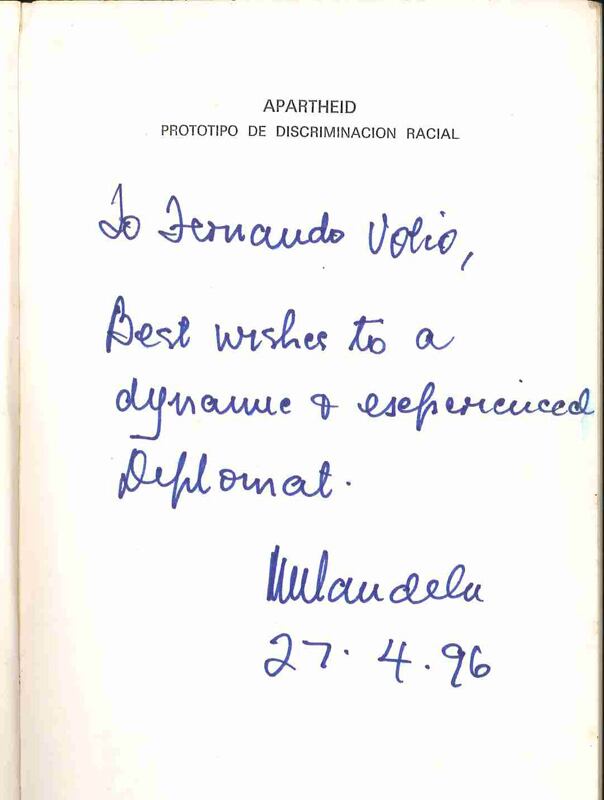 APARTHEID
PROTOTIPO DE DISCRIMINACION RACIAL
To Fernando Volio,
Best wishes to a
dynamic & experienced
Diplomat.
NMandela
27.4.96